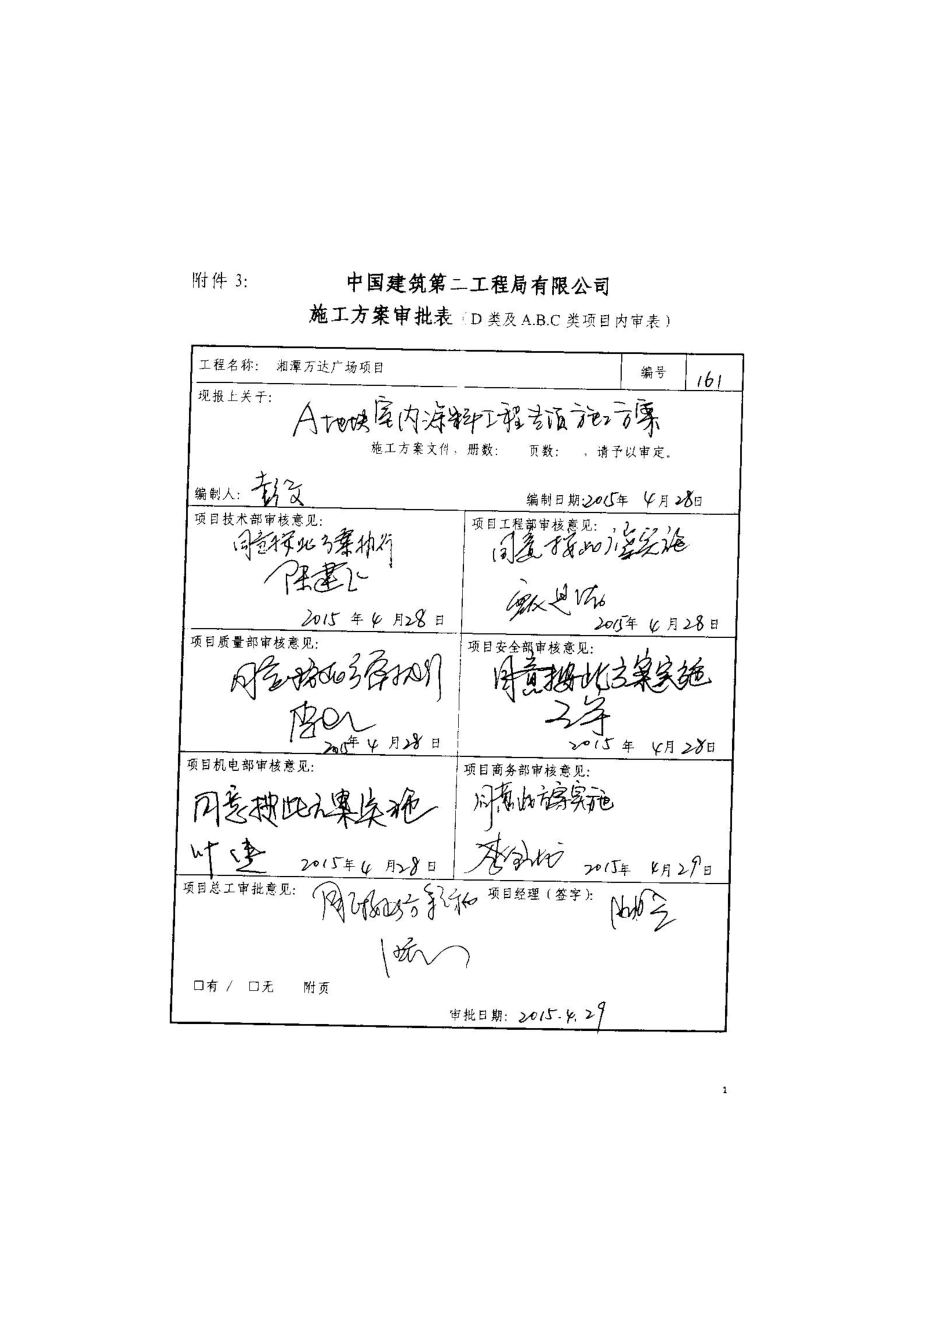 附件 3:
中国建筑第二工程局有限公司
施工方案审批表（D 类及 A.B.C 类项目内审表）
工程名称: 湘潭万达广场项目 编号 161
现报上关于:
A地块室内涂料工程专项施工方案
施工方案文件，册数: 页数: ，请予以审定。
编制人: 彭文 编制日期:2015年 4月28日
项目技术部审核意见: 项目工程部审核意见:
同意按此方案执行 同意按此方案实施
陈建
2015年4月28日 2015年4月28日
项目质量部审核意见: 项目安全部审核意见:
同意按此方案执行 同意按此方案实施
2015年4月28日 2015年4月28日
项目机电部审核意见: 项目商务部审核意见:
同意按此方案实施 同意此方案实施
叶
2015年4月28日 2015年4月29日
项目总工审批意见: 项目经理（签字）:
□有 / □无 附页
审批日期: 2015.4.29
1